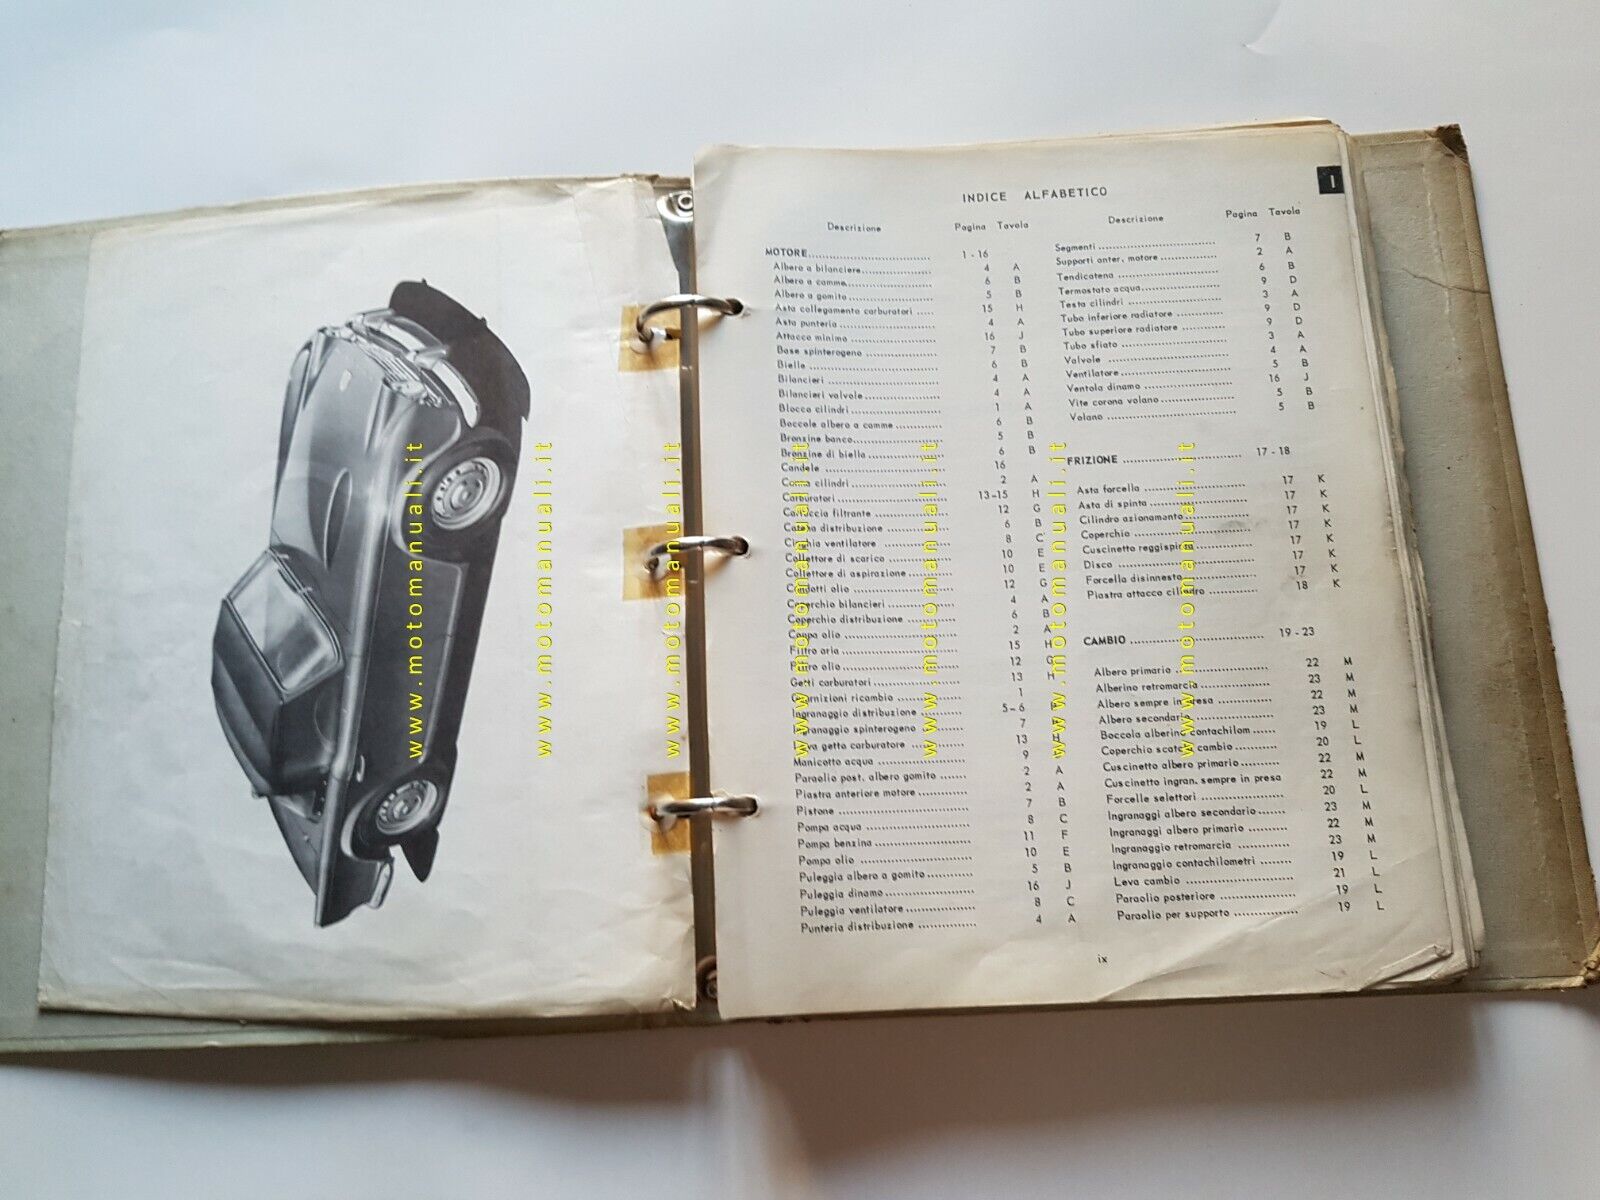 I
INDICE ALFABETICO
Descrizione Pagina Tavola
MOTORE 1 - 16
Albero a bilanciere 4 A
Albero a camme 6 B
Albero a gomito 5 B
Asta collegamento carburatori 15 H
Asta punteria 4 A
Attacco minimo 16 J
Base spinterogeno 7 B
Bielle 6 B
Bilancieri 4 A
Bilancieri valvole 4 A
Blocco cilindri 1 A
Boccole albero a camme 6 B
Bronzine banco 5 B
Bronzine di biella 6 B
Candele 16
cilindri 2 A
Carburatori 13-15 H
Cartuccia filtrante 12 G
Catena distribuzione 6 B
Cinghia ventilatore 8 C
Collettore di scarico 10 E
Collettore di aspirazione 10 E
Condotti olio 12 G
Coperchio bilancieri 4 A
Coperchio distribuzione 6 B
Coppa olio 2 A
Filtro aria 15 H
Filtro olio 12 G
Getti carburatori 13 H
Guarnizioni ricambio 1
Ingranaggio distribuzione 5-6
Ingranaggio spinterogeno 7
Leva getto carburatore 13 H
Manicotto acqua 9
Paraolio post. albero gomito 2 A
Piastra anteriore motore 2 A
Pistone 7 B
Pompa acqua 8 C
Pompa benzina 11 F
Pompa olio 10 E
Puleggia albero a gomito 5 B
Puleggia dinamo 16 J
Puleggia ventilatore 8 C
Punteria distribuzione 4 A
Descrizione Pagina Tavola
Segmenti 7 B
Supporti anter. motore 2 A
Tendicatena 6 B
Termostato acqua 9 D
Testa cilindri 3 A
Tubo inferiore radiatore 9 D
Tubo superiore radiatore 9 D
Tubo sfiato 3 A
Valvole 4 A
Ventilatore 5 B
Ventola dinamo 16 J
Vite corona volano 5 B
Volano 5 B
FRIZIONE 17 - 18
Asta forcella 17 K
Asta di spinta 17 K
Cilindro azionamento 17 K
Coperchio 17 K
Cuscinetto reggispinta 17 K
Disco 17 K
Forcella disinnesto 17 K
Piastra attacco cilindro 18 K
CAMBIO 19 - 23
Albero primario 22 M
Alberino retromarcia 23 M
Albero sempre in presa 22 M
Albero secondario 23 M
Boccola alberino contachilom 19 L
Coperchio scatola cambio 20 L
Cuscinetto albero primario 22 M
Cuscinetto ingran. sempre in presa 22 M
Forcelle selettori 20 L
Ingranaggi albero secondario 23 M
Ingranaggi albero primario 22 M
Ingranaggio retromarcia 23 M
Ingranaggio contachilometri 19 L
Leva cambio 21 L
Paraolio posteriore 19 L
Paraolio per supporto 19 L
ix
www.motomanuali.it
www.motomanuali.it
www.motomanuali.it
www.motomanuali.it
www.motomanuali.it
www.motomanuali.it
www.motomanuali.it